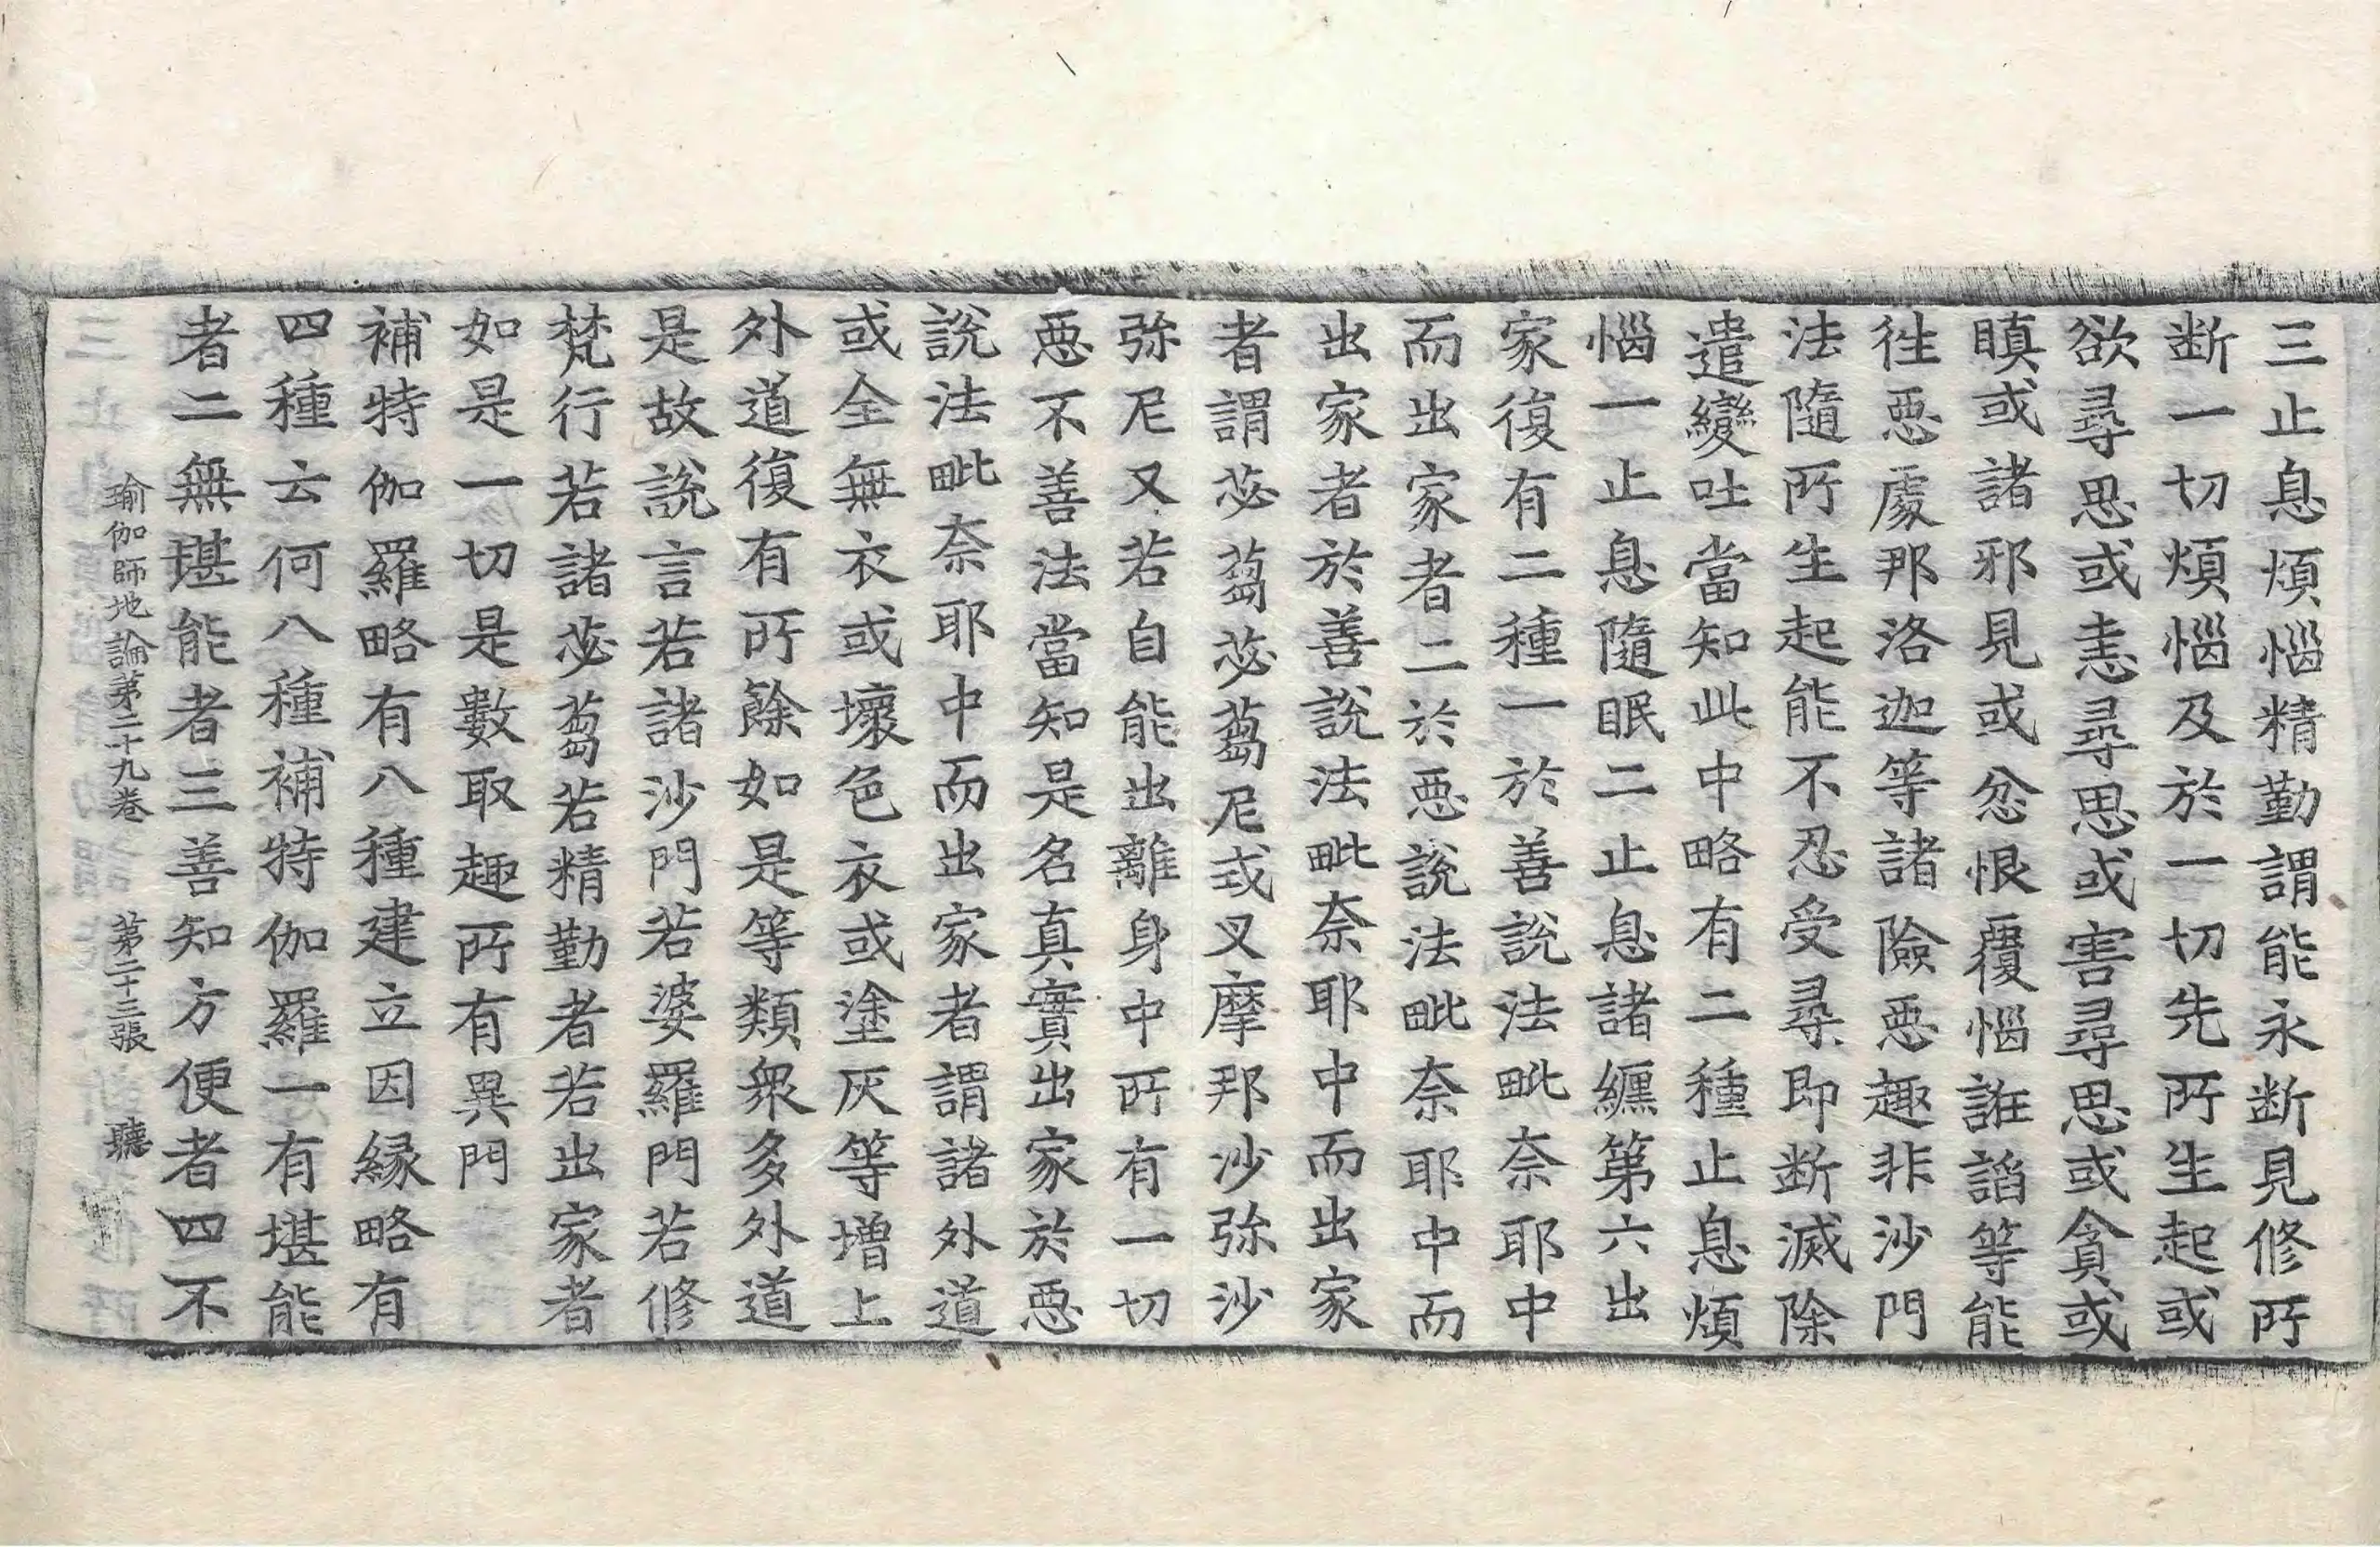 三止息煩惱精勤謂能永断見修所
断一切煩惱及於一切先所生起或
欲尋思或恚尋思或害尋思或貪或
瞋或諸邪見或忿恨覆惱誑諂等能
徃惡處那洛迦等諸險惡趣非沙門
法隨所生起能不忍受尋即断滅除
遣變吐當知此中略有二種止息煩
惱一止息隨眠二止息諸纏第六出
家復有二種一於善說法毗奈耶中
而出家者二於惡說法毗奈耶中而
出家者於善說法毗奈耶中而出家
者謂苾蒭苾蒭尼式叉摩那沙弥沙
弥尼又若自能出離身中所有一切
惡不善法當知是名真實出家於惡
說法毗奈耶中而出家者謂諸外道
或全無衣或壞色衣或塗灰等增上
外道復有所餘如是等類衆多外道
是故說言若諸沙門若婆羅門若修
梵行若諸苾蒭若精勤者若出家者
如是一切是數取趣所有異門
補特伽羅略有八種建立因緣略有
四種云何八種補特伽羅一有堪能
者二無堪能者三善知方便者四不
瑜伽師地論第二十九卷 第二十三張 聽